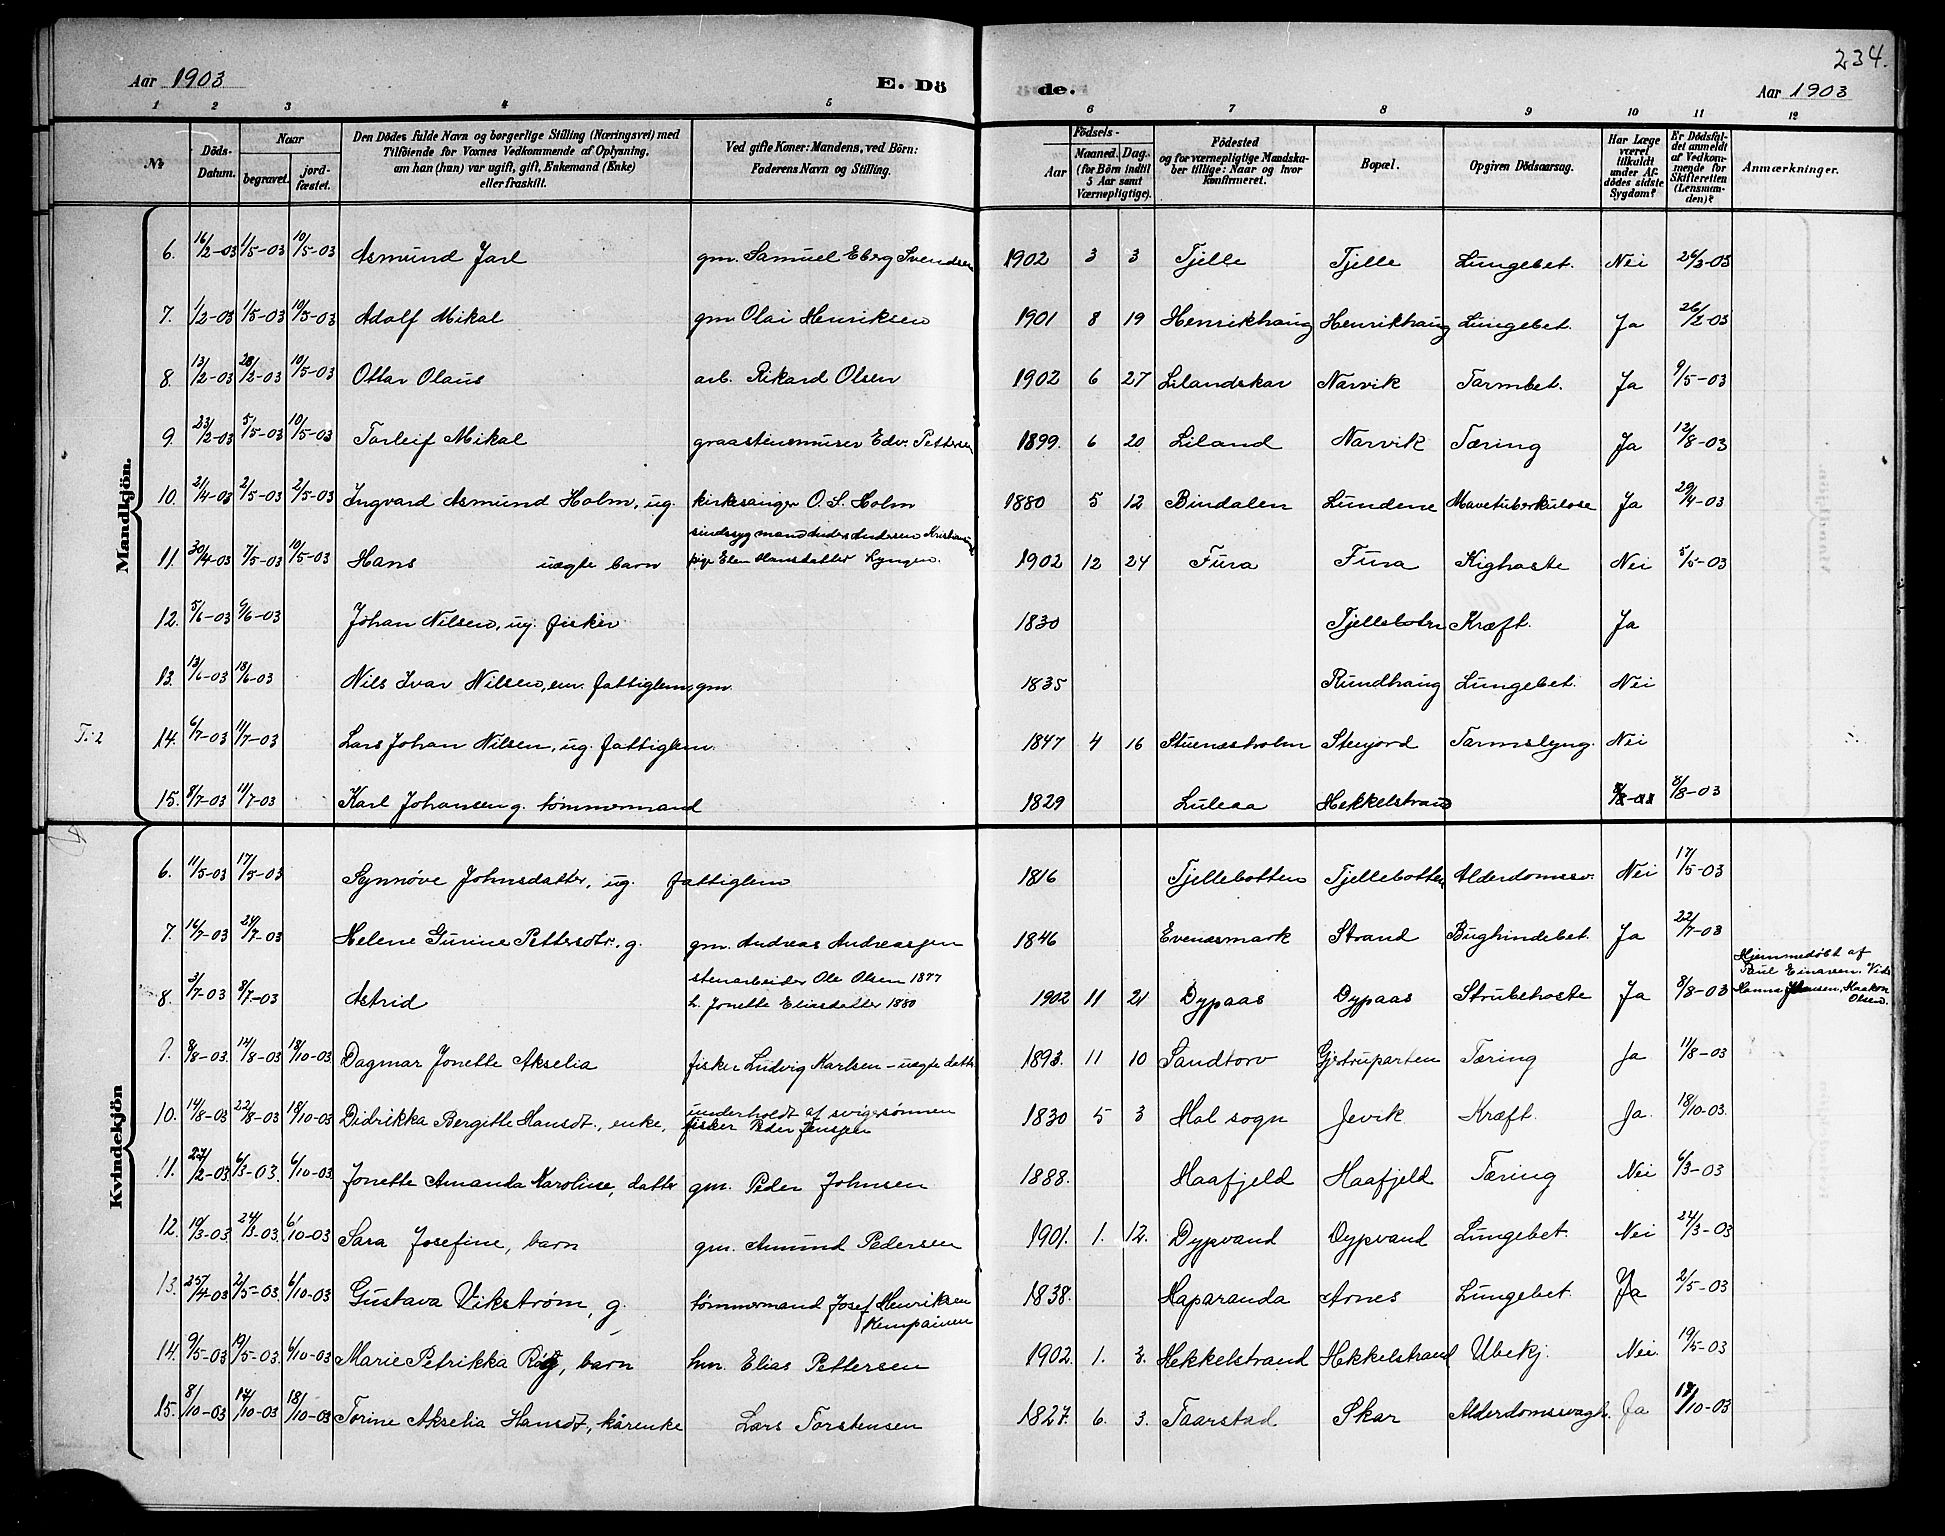 234.
Aar 1903 E. Dö de. Aar 1903
1 2 3 4 5 6 7 8 9 10 11 12
№ Döds-Datum. Naar begravet. jordfæstet. Den Dödes fulde Navn og borgerlige Stilling (Næringsvei) med Tilföiende for Voxnes Vedkommende af Oplysning, om han (hun) var ugift, gift, Enkemand (Enke) eller fraskilt. Ved gifte Koner: Mandens, ved Börn: Faderens Navn og Stilling. Födsels- Aar Maaned. Dag. (for Börn indtil 5 Aar samt Værnepligtige). Födested og for værnepligtige Mandskaber tillige: Naar og hvor konfirmeret. Bopæl. Opgiven Dödsaarsag. Har Læge været tilkaldt under Afdödes sidste Sygdom? Er Dödsfaldet anmeldt af Vedkommende for Skifteretten (Lensmanden)? Anmærkninger.
Mandkjön.
6. 16/2-03 1/5-03 10/5-03 Asmund Jarl gm. Samuel Eberg Svendsen 1902 3 3 Tjelle Tjelle Lungebet. Nei 26/3-03
7. 1/2-03 1/5-03 10/5-03 Adolf Mikal gm. Olai Henriksen 1901 8 19 Henrikhaug Henrikhaug Lungebet. Ja 26/2-03
8. 13/2-03 28/2-03 10/5-03 Ottar Olaus arb. Rikard Olsen 1902 6 27 Lilandskar Narvik Tarmbet. Ja 9/5-03
9. 23/2-03 5/5-03 10/5-03 Torleif Mikal graastensmurer Edv. Pettersen 1899. 6 20 Liland Narvik Tæring Ja 12/8-03
10. 21/4-03 2/5-03 2/5-03 Ingvard Asmund Holm, ug. kirkesanger O. S. Holm 1880 5 12 Bindalen Lundene Mavetuberkulose Ja 29/4-03
11. 30/4-03 7/5-03 10/5-03 Hans uægte barn sindssyg mand Anders Andersen pige Elen Hansdatter Lyngen. 1902 12 24 Fura Fura Kighoste Nei 5/5-03
12. 5/6-03 6/6-03 Johan Nilsen, ug. fisker 1830 Tjellebotn Kræft. Ja
13. 13/6-03 18/6-03 Nils Ivar Nilsen, em. fattiglem, gm. 1835 Rundhaug Lungebet. Nei
T. 2 14. 6/7-03 11/7-03 Lars Johan Nilsen, ug. fattiglem. 1847 4 16 Stuenesholm Stenjord Tarmslyng. Nei
15. 8/7-03 11/7-03 Karl Johansen g. tømmermand 1829 Luleaa Hekkelstrand 8/8-03
Kvindekjön
6. 11/5-03 17/5-03 Synnøve Johnsdatter, ug. fattiglem 1816 Tjellebotten Tjellebotten Alderdomssv. Nei 17/5-03
7. 16/7-03 24/7-03 Helene Gurine Pettersdtr. g. gm. Andreas Andreassen 1846 Evenæsmark Strand Bughindebet. Ja 22/7-03
8. 3/7-03 8/7-03 Astrid stenarbeider Ole Olsen 1877 h. Jonette Eliasdatter 1880 1902 11 21 Dypaas Dypaas Strubehoste Ja 8/8-03 Hjemmedøbt af Paul Einarsen. Vid: Hanna Johansen, Haakon Olsen.
9. 8/8-03. 14/8-03 18/10-03 Dagmar Jonette Akselia fisker Ludvig Karlsen - uægte datter 1893. 11 10 Sandtorv Gjetruparten Tæring Ja 11/8-03
10. 14/8-03 22/8-03 18/10-03 Didrikka Bergitte Hansdt., enke, underholdt af svigersønnen fisker Peder Jenssen 1830 5 3 Hol sogn Jevik Kræft. Ja. 18/10-03.
11. 27/2-03 6/3-03. 6/10-03 Jonette Amanda Karoline, datter gm. Peder Johnsen 1888. Haafjeld Haafjeld Tæring Nei 6/3-03
12. 19/3-03. 24/3-03. 6/10-03 Sara Josefine, barn gm. Amund Pedersen 1901. 1. 12. Dypvand Dypvand Lungebet. Nei 24/3-03
13. 25/4-03 2/5-03. 6/10-03 Gustava Vikstrøm, g. tømmermand Josef Henriksen Kempainen 1838. Haparanda Arnes Lungebet. Ja 2/5-03
14. 9/5-03 19/5-03. 6/10-03 Marie Petrikka, barn hm. Elias Pettersen 1902. 1. 3. Hekkelstrand Hekkelstrand Ubekj. Nei. 19/5-03
15. 8/10-03 17/10-03 18/10-03 Torine Akselia Hansdt, kårenke Lars Torstensen 1827. 6. 3. Taarstad Skar Alderdomssvagh. Ja 17/10-03